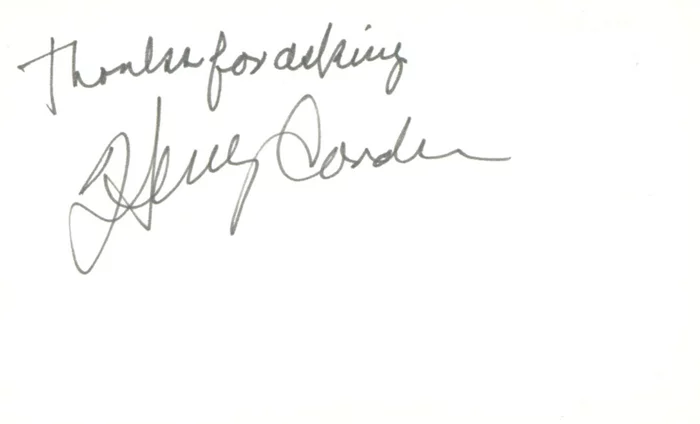 Thanks for asking
Henry Corden